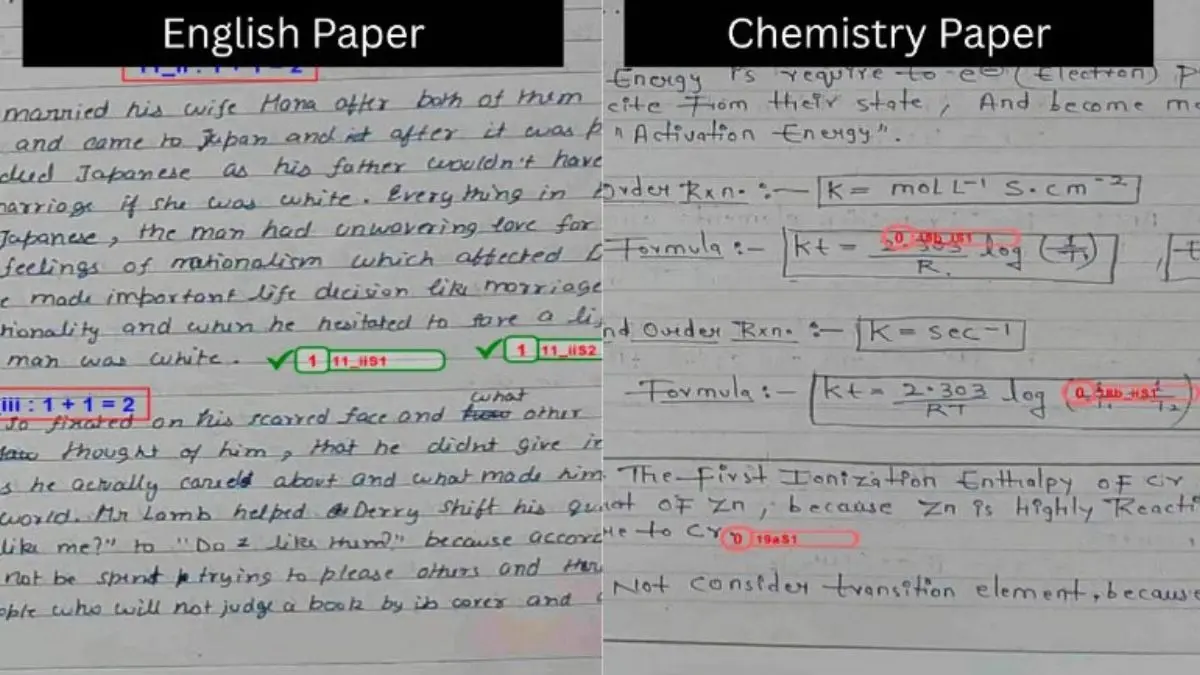 English Paper
11_ii : 1 + 1 = 2
married his wife Hana after both of them
and came to Japan and after it was
Japanese as his father wouldn't have
marriage if she was white. Everything in
Japanese, the man had unwavering love for
feelings of nationalism which affected
made important life decision like marriage
nationality and when he hesitated to save a
man was white.
1 11_iiS1
1 11_iiS2
iii : 1 + 1 = 2
what
so fixated on his scarred face and how other
thought of him, that he didnt give
he actually cared about and what made him
world. Mr Lamb helped Derry shift his
like me?" to "Do I like them?" because
not be spent trying to please others and
who will not judge a book by its cover and
Chemistry Paper
Energy is require to e⊖ (Electron)
cite From their state, And become
"Activation Energy".
Order Rxn. :— K = mol L⁻¹ S. cm⁻²
Formula :— Kt = 2.303 log
R.
0
nd Ourder Rxn. :— K = sec⁻¹
Formula :— Kt = 2.303 log
RT
0
The First Ionization Enthalpy of Cr
of Zn, because Zn is Highly
to Cr
0 19aS1
Not consider transition element, because